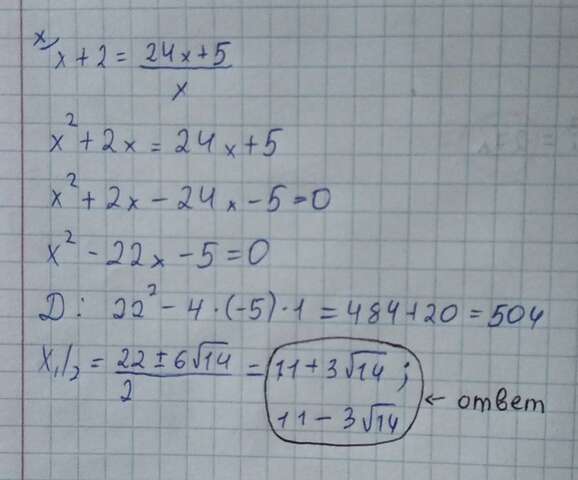 x/ x + 2 = 24x+5 / x
x² + 2x = 24x+5
x² + 2x - 24x - 5 = 0
x² - 22x - 5 = 0
D: 22² - 4·(-5)·1 = 484+20 = 504
x₁/₂ = 22 ± 6√14 / 2 = 11 + 3√14 ;
11 - 3√14 ← ответ